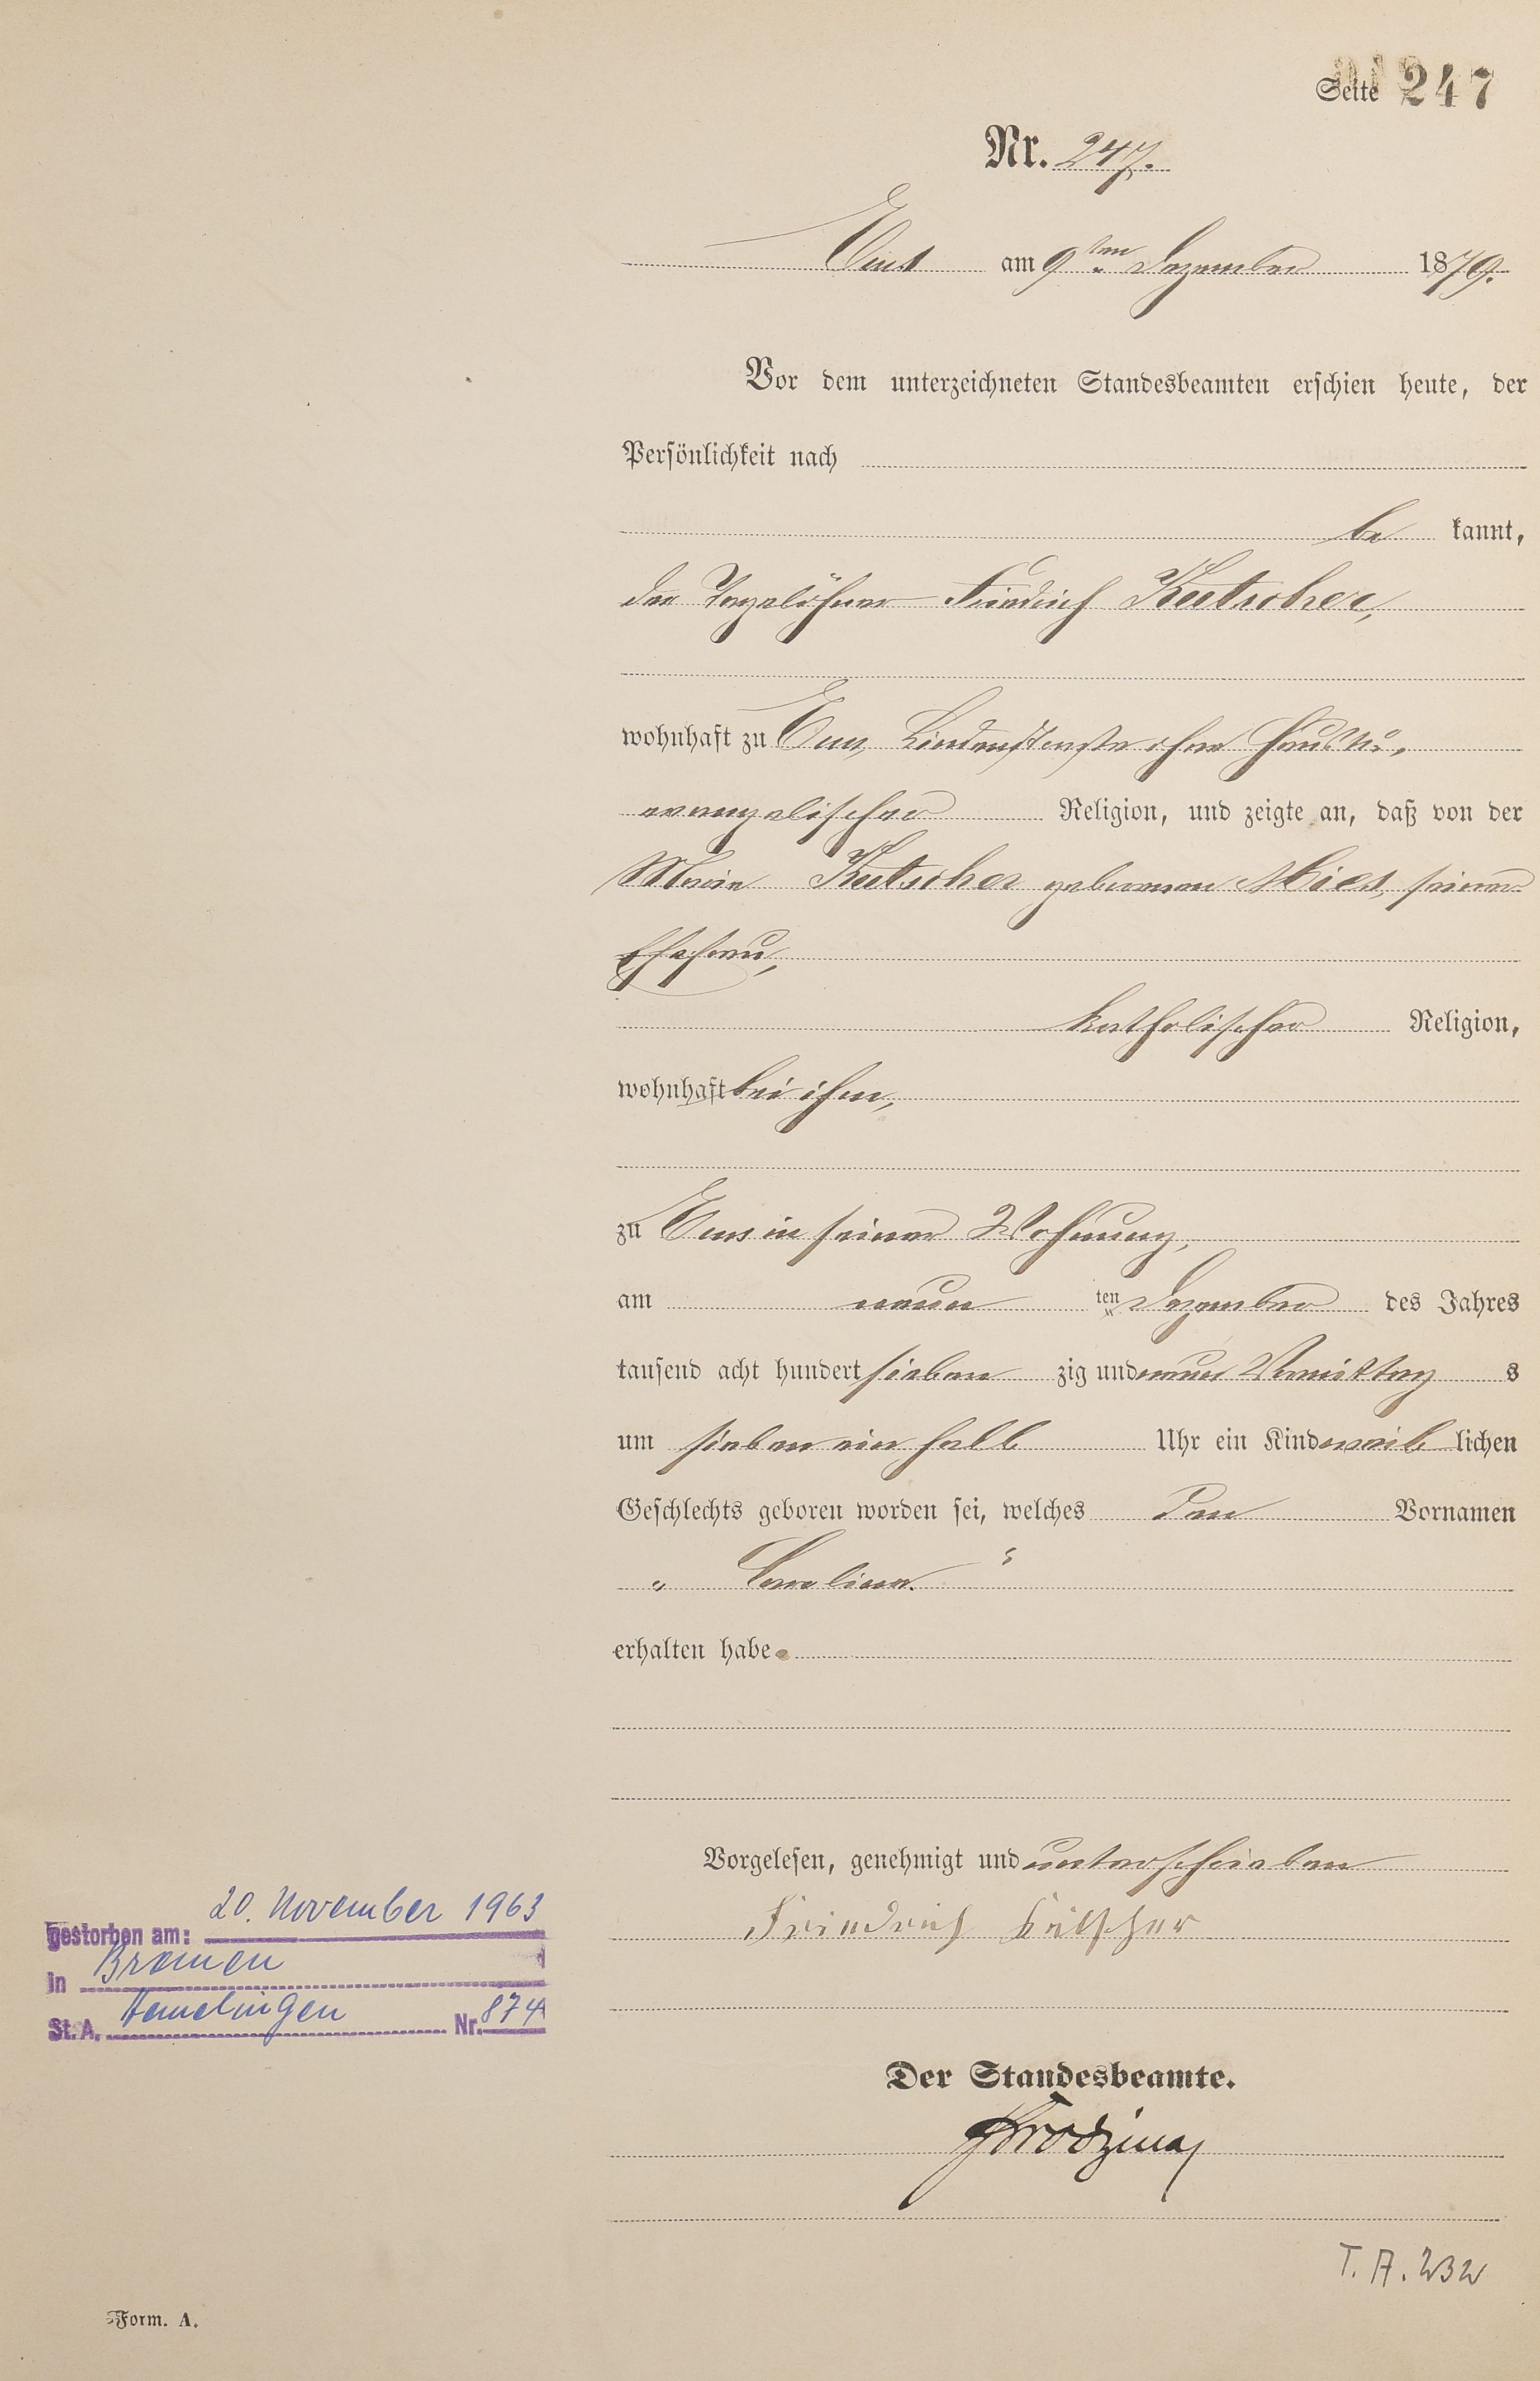 Seite 247
Nr. 247.
Ems am 9ten Dezember 1879.
Vor dem unterzeichneten Standesbeamten erschien heute, der
Persönlichkeit nach
be kannt,
der Tagelöhner Friedrich Kutscher,
wohnhaft zu Ems, Lindenstraße ohne Haus No.,
evangelischer Religion, und zeigte an, daß von der
Marie Kutscher geborenen Mies, seiner
Ehefrau,
katholischer Religion,
wohnhaft bei ihm,
zu Ems in seiner Wohnung,
am neun ten Dezember des Jahres
tausend acht hundert sieben zig und neun Vormittag s
um sieben ein halb Uhr ein Kind weib lichen
Geschlechts geboren worden sei, welches den Vornamen
„ Caroline. "
erhalten habe.
Vorgelesen, genehmigt und unterschrieben
Friedrich
gestorben am: 20. November 1963
in Bremen
St. A. Hemelingen Nr. 874
Der Standesbeamte.
T. A. 232
Form. A.